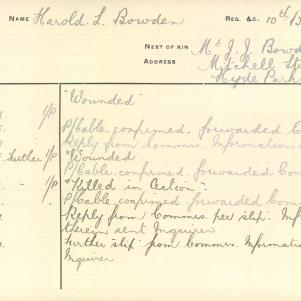 NAME Harold. L. Bowden REG. &C. 10th B
NEXT OF KIN Mr J. J. Bowd
ADDRESS Mitchell Str
Hyde Park
1/p "Wounded"
P/Cable, confirmed. forwarded Co
Reply from Commrs. Information
Further 1/p "Wounded
P/Cable, confirmed. forwarded Com
1/p "Killed in Action".
P/Cable, confirmed forwarded Com
Reply from Commrs. per slip. Inf
therein sent Inquirer
Further "slip" from Commrs. Informatio
Inquirer